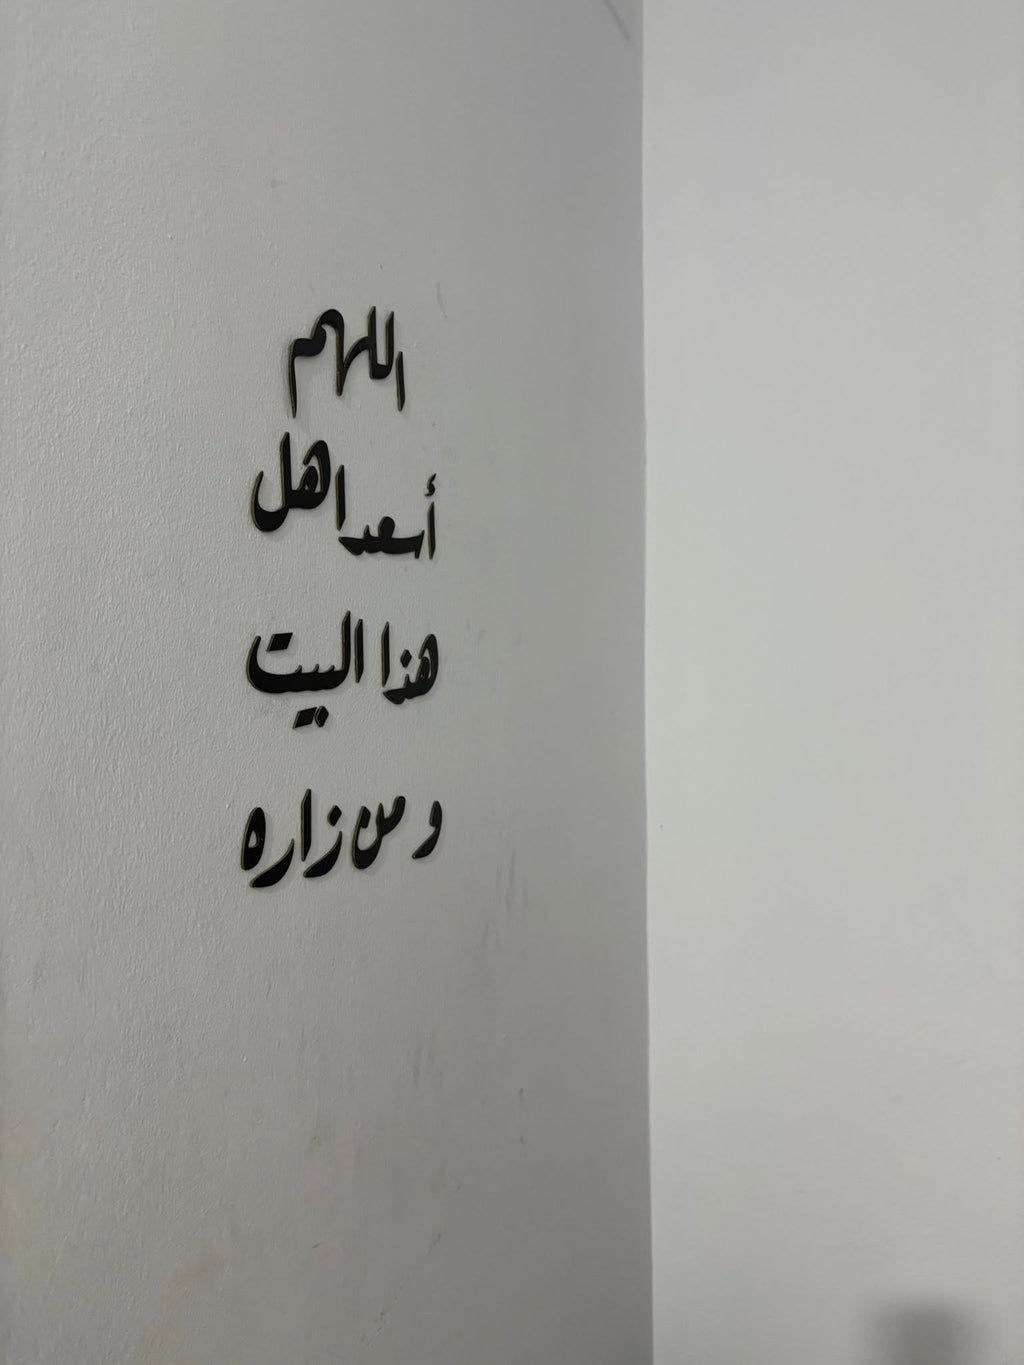 اللهم
أسعد اهل
هذا البيت
و من زاره